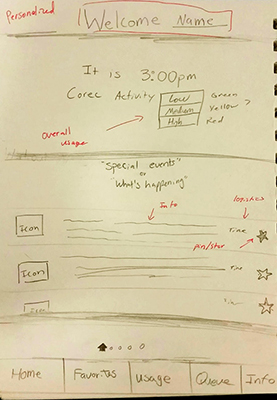 Personalized
Welcome Name
It is 3:00pm
Corec Activity Low Green
Medium Yellow ?
High Red
overall
usage
"Special events"
or
"What's happening"
Info
logistics
Icon Time
pin/star
Icon Time
Icon Time
Home Favorites Usage Queue Info